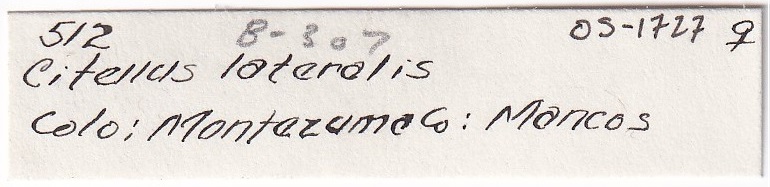 512 B-307 OS-1727 ♀
Citellus lateralis
Colo: Montezuma Co: Mancos